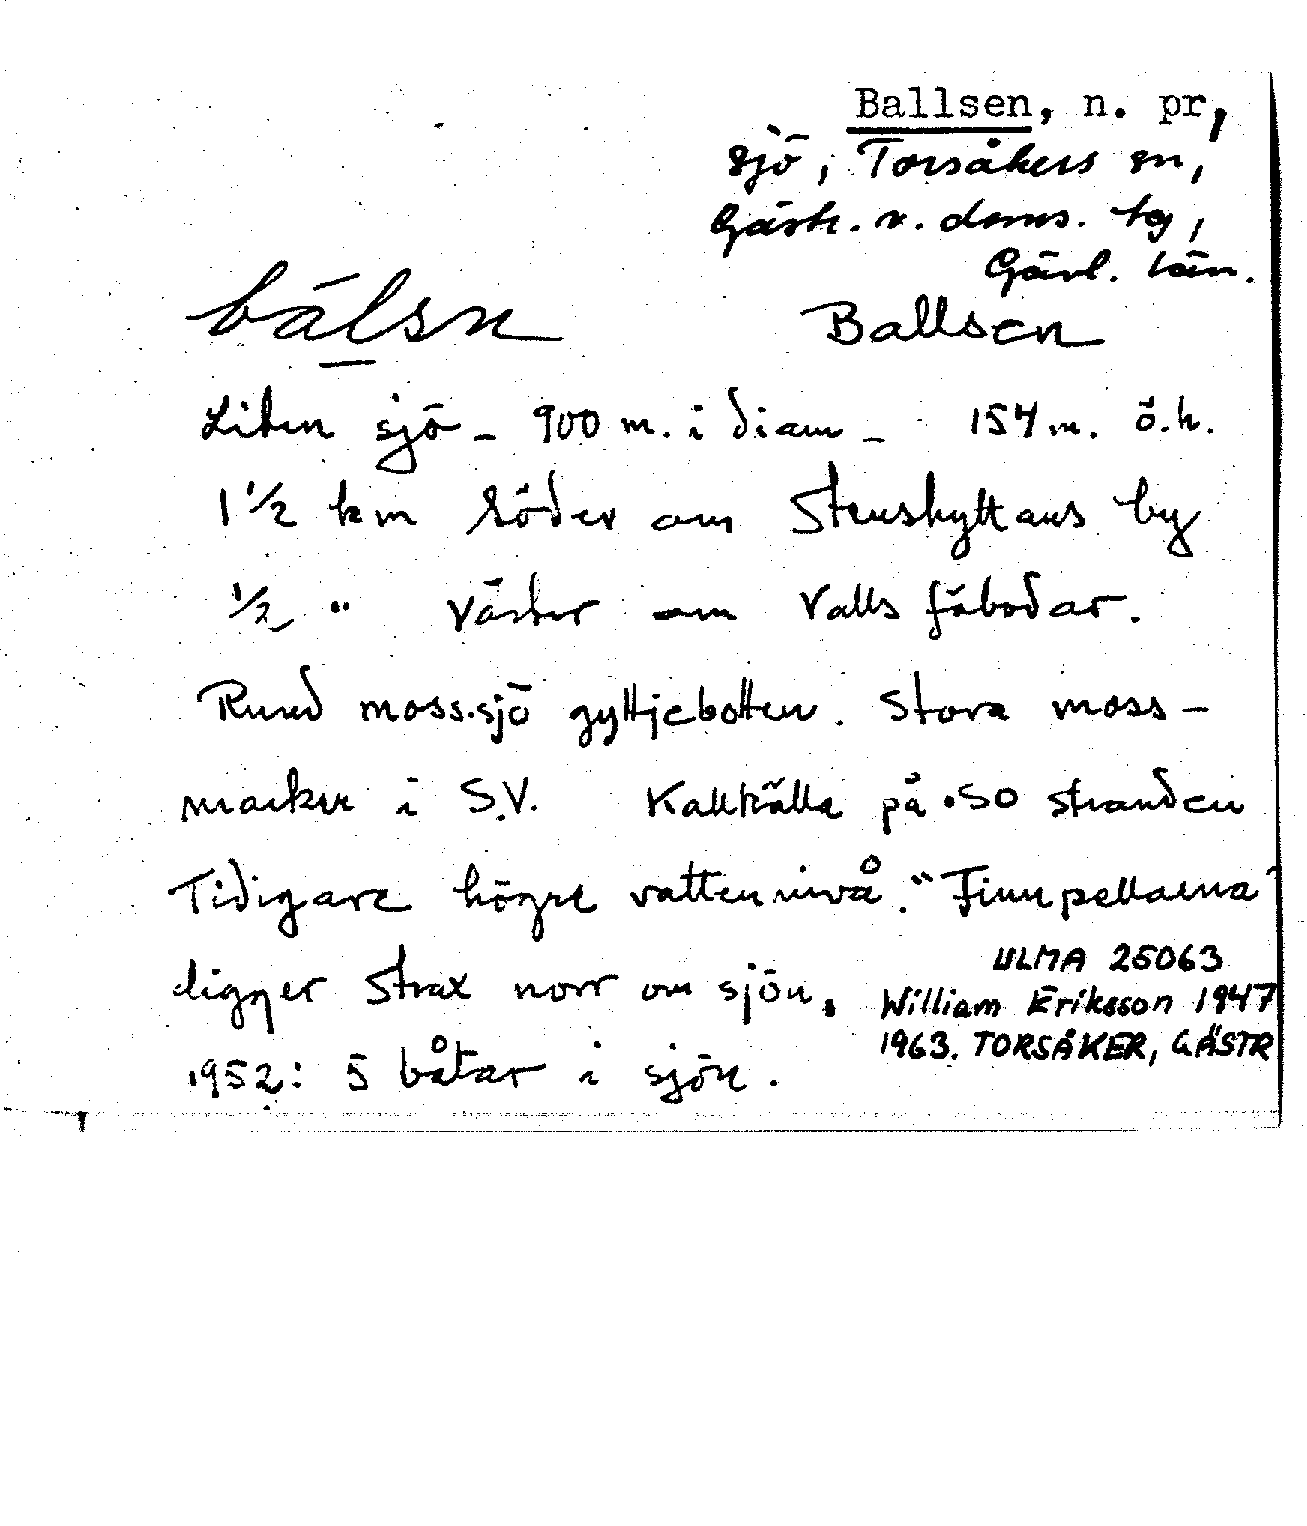 Ballsen, n. pr,
sjö, Torsåkers sn,
Gästr. v. doms. tg,
Gävl. län.
bálsn Ballsen
Liten sjö - 900 m. i diam - 154 m. ö.h.
1 1/2 km söder om Stenshyttans by
1/2 " väster om Valls fäbodar.
Rund moss.sjö gyttjebotten. Stora moss-
marker i S.V. Kallkälla på SO stranden
Tidigare högre vattennivå. "Finnpellarna"
ligger strax norr om sjön.
1952: 5 båtar i sjön.
ULMA 25063
William Eriksson 1947
1963. TORSÅKER, GÄSTR